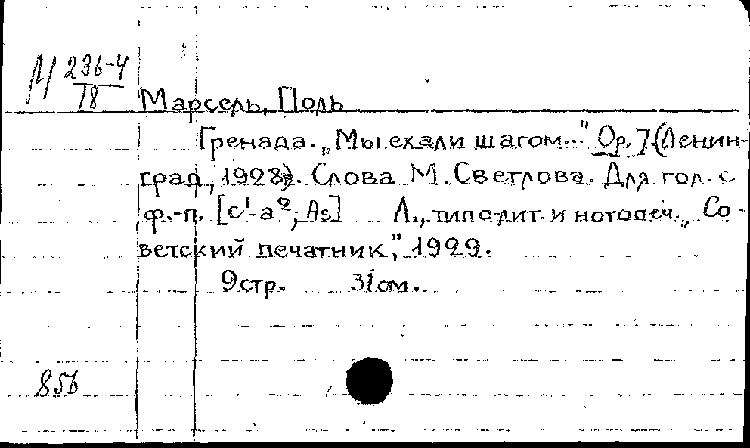 М 236-4
18
Марсель, Поль
Гренада. „Мы ехали шагом..." Op. 7. (Ленин-
град, 1928). Слова М. Светлова. Для гол. с
ф.-п. [c¹-a², As] Л., типо-лит. и нотопеч. „Со-
ветский печатник", 1929.
9 стр. 31 см.
856